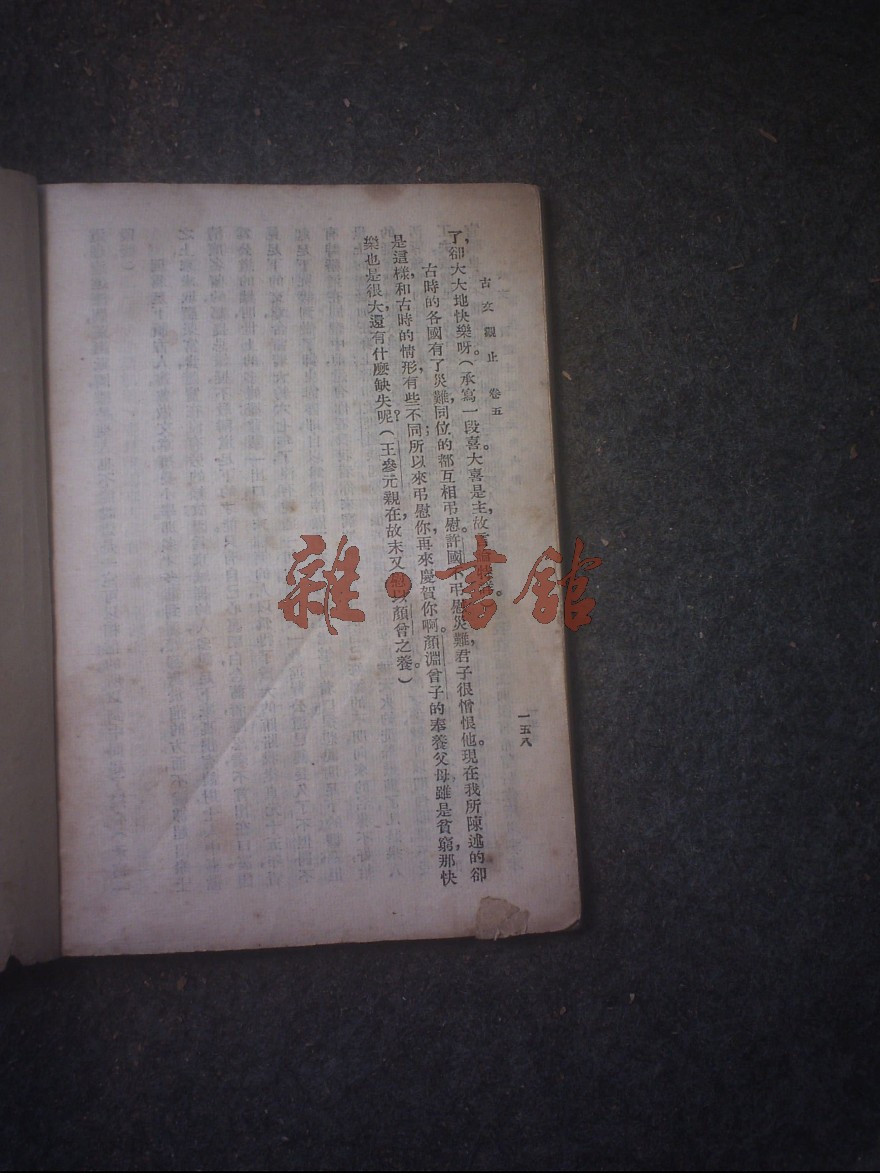 古文觀止 卷五
一五八
了,卻大大地快樂呀。(承寫一段喜。大喜是主,故言
古時的各國有了災難,同位的都互相弔慰。許國不弔慰災難,君子很憎恨他。現在我所陳述的卻
是這樣,和古時的情形有些不同;所以來弔慰你,再來慶賀你啊。顏淵曾子的奉養父母雖是貧窮,那快
樂也是很大,還有什麼缺失呢?(王參元親在,故末又以顏曾之養。)
雜·書館